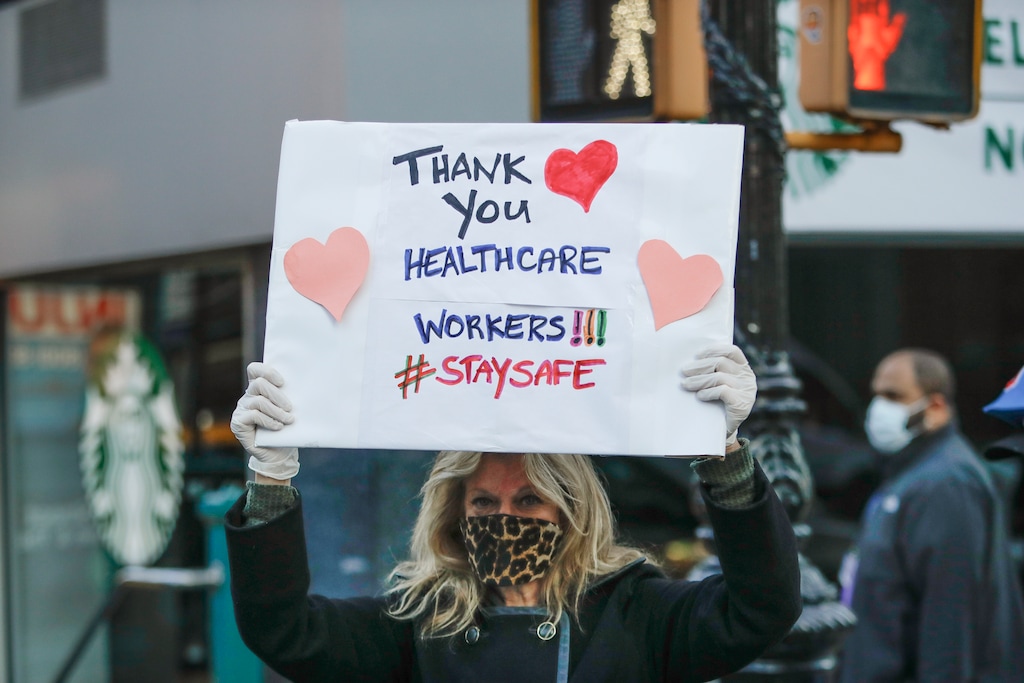 THANK
YOU
HEALTHCARE
WORKERS!!!
#STAYSAFE